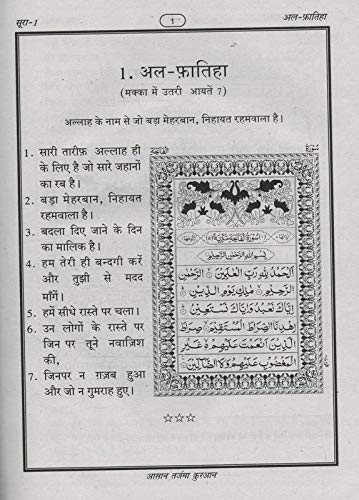 सूरा-1
1
अल-फ़ातिहा
1. अल-फ़ातिहा
(मक्का में उतरी आयतें 7)
अल्लाह के नाम से जो बड़ा मेहरबान, निहायत रहमवाला है।
1. सारी तारीफ़ अल्लाह ही
के लिए है जो सारे जहानों
का रब है।
2. बड़ा मेहरबान, निहायत
रहमवाला है।
3. बदला दिए जाने के दिन
का मालिक है।
4. हम तेरी ही बन्दगी करें
और तुझी से मदद
माँगें।
5. हमें सीधे रास्ते पर चला।
6. उन लोगों के रास्ते पर
जिन पर तूने नवाज़िश
की,
7. जिनपर न ग़ज़ब हुआ
और जो न गुमराह हुए।
الفاتحة
سورة
بِسْمِ اللّٰهِ الرَّحْمٰنِ الرَّحِيْمِ
اَلْحَمْدُ لِلّٰهِ رَبِّ الْعٰلَمِيْنَ الرَّحْمٰنِ
الرَّحِيْمِ مٰلِكِ يَوْمِ الدِّيْنِ
اِيَّاكَ نَعْبُدُ وَاِيَّاكَ نَسْتَعِيْنُ
اِهْدِنَا الصِّرَاطَ الْمُسْتَقِيْمَ صِرَاطَ
الَّذِيْنَ اَنْعَمْتَ عَلَيْهِمْ غَيْرِ
الْمَغْضُوْبِ عَلَيْهِمْ وَلَا الضَّآلِّيْنَ
☆☆☆
आसान तर्जमा क़ुरआन